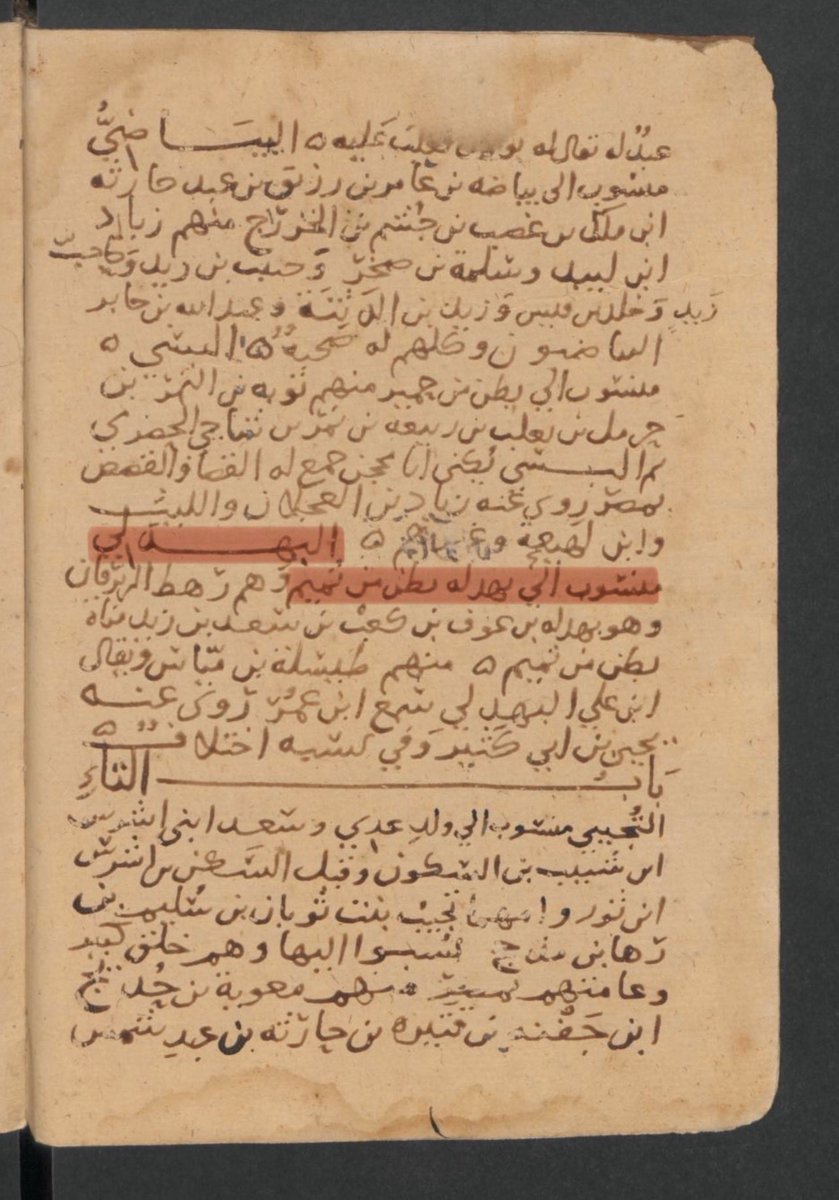 عبدٌ له يقال له عليه ٥ البيَاضِيُّ
منسوب الى بياضه بن عامر بن رزيق بن عبد حارثه
ابن ملك بن غضب بن جُشم بن الخزرج منهم زياد
ابن لبيد وسَلمة بن صخر وَ بن زيد
زَيدٍ وَخلد بن قيس وَزيد بن الدَثِنَة وعبد الله بن جابر
البياضيون وكلهم له صُحبةٌ ٥ البَسْي ٥
منسوب الى بطن من حمير منهم توبه بن النمر بن
حرمل بن تغلب بن ربيعه بن نمر بن الحضرمي
ثم البسى يُكنى ابا محجن جمع له القضا والقصص
بمصر روى عنه زياد بن العجلان والليث
وابن لهيعة وغيرهم ٥ البهدَلي
منسوب الى بهدله بطن من تميم وَهم رَهط الزبرقان
وهو بهدله بن عوف بن كعْب بن سَعد بن زيد مناه
بطن من تميم ٥ منهم طيسَلة بن ميّاس ويقال
ابن علي البهدلي سَمع ابن عمُرَ رَوى عنه
يحيى بن ابي كَثير وَفي نسَبه اختلافٌ ٥
بَابُ التاءِ
التُجيبى منسوب الى ولدِ عدِي وسَعد ابنى اشرس
ابن شبيب بن السَكون وقيل السَكن بن اشرس
ابن ثور وامهما تجيبُ بنت ثوبان بن سُليم بن
رَها بن مذحج نُسبوا اليها وهم خلق كثير
وعامتهم بمصر ٥ منهم معوية بن حُديج
ابن جَفْنه بن قتيره بن حارثه بن عبدِ شمس